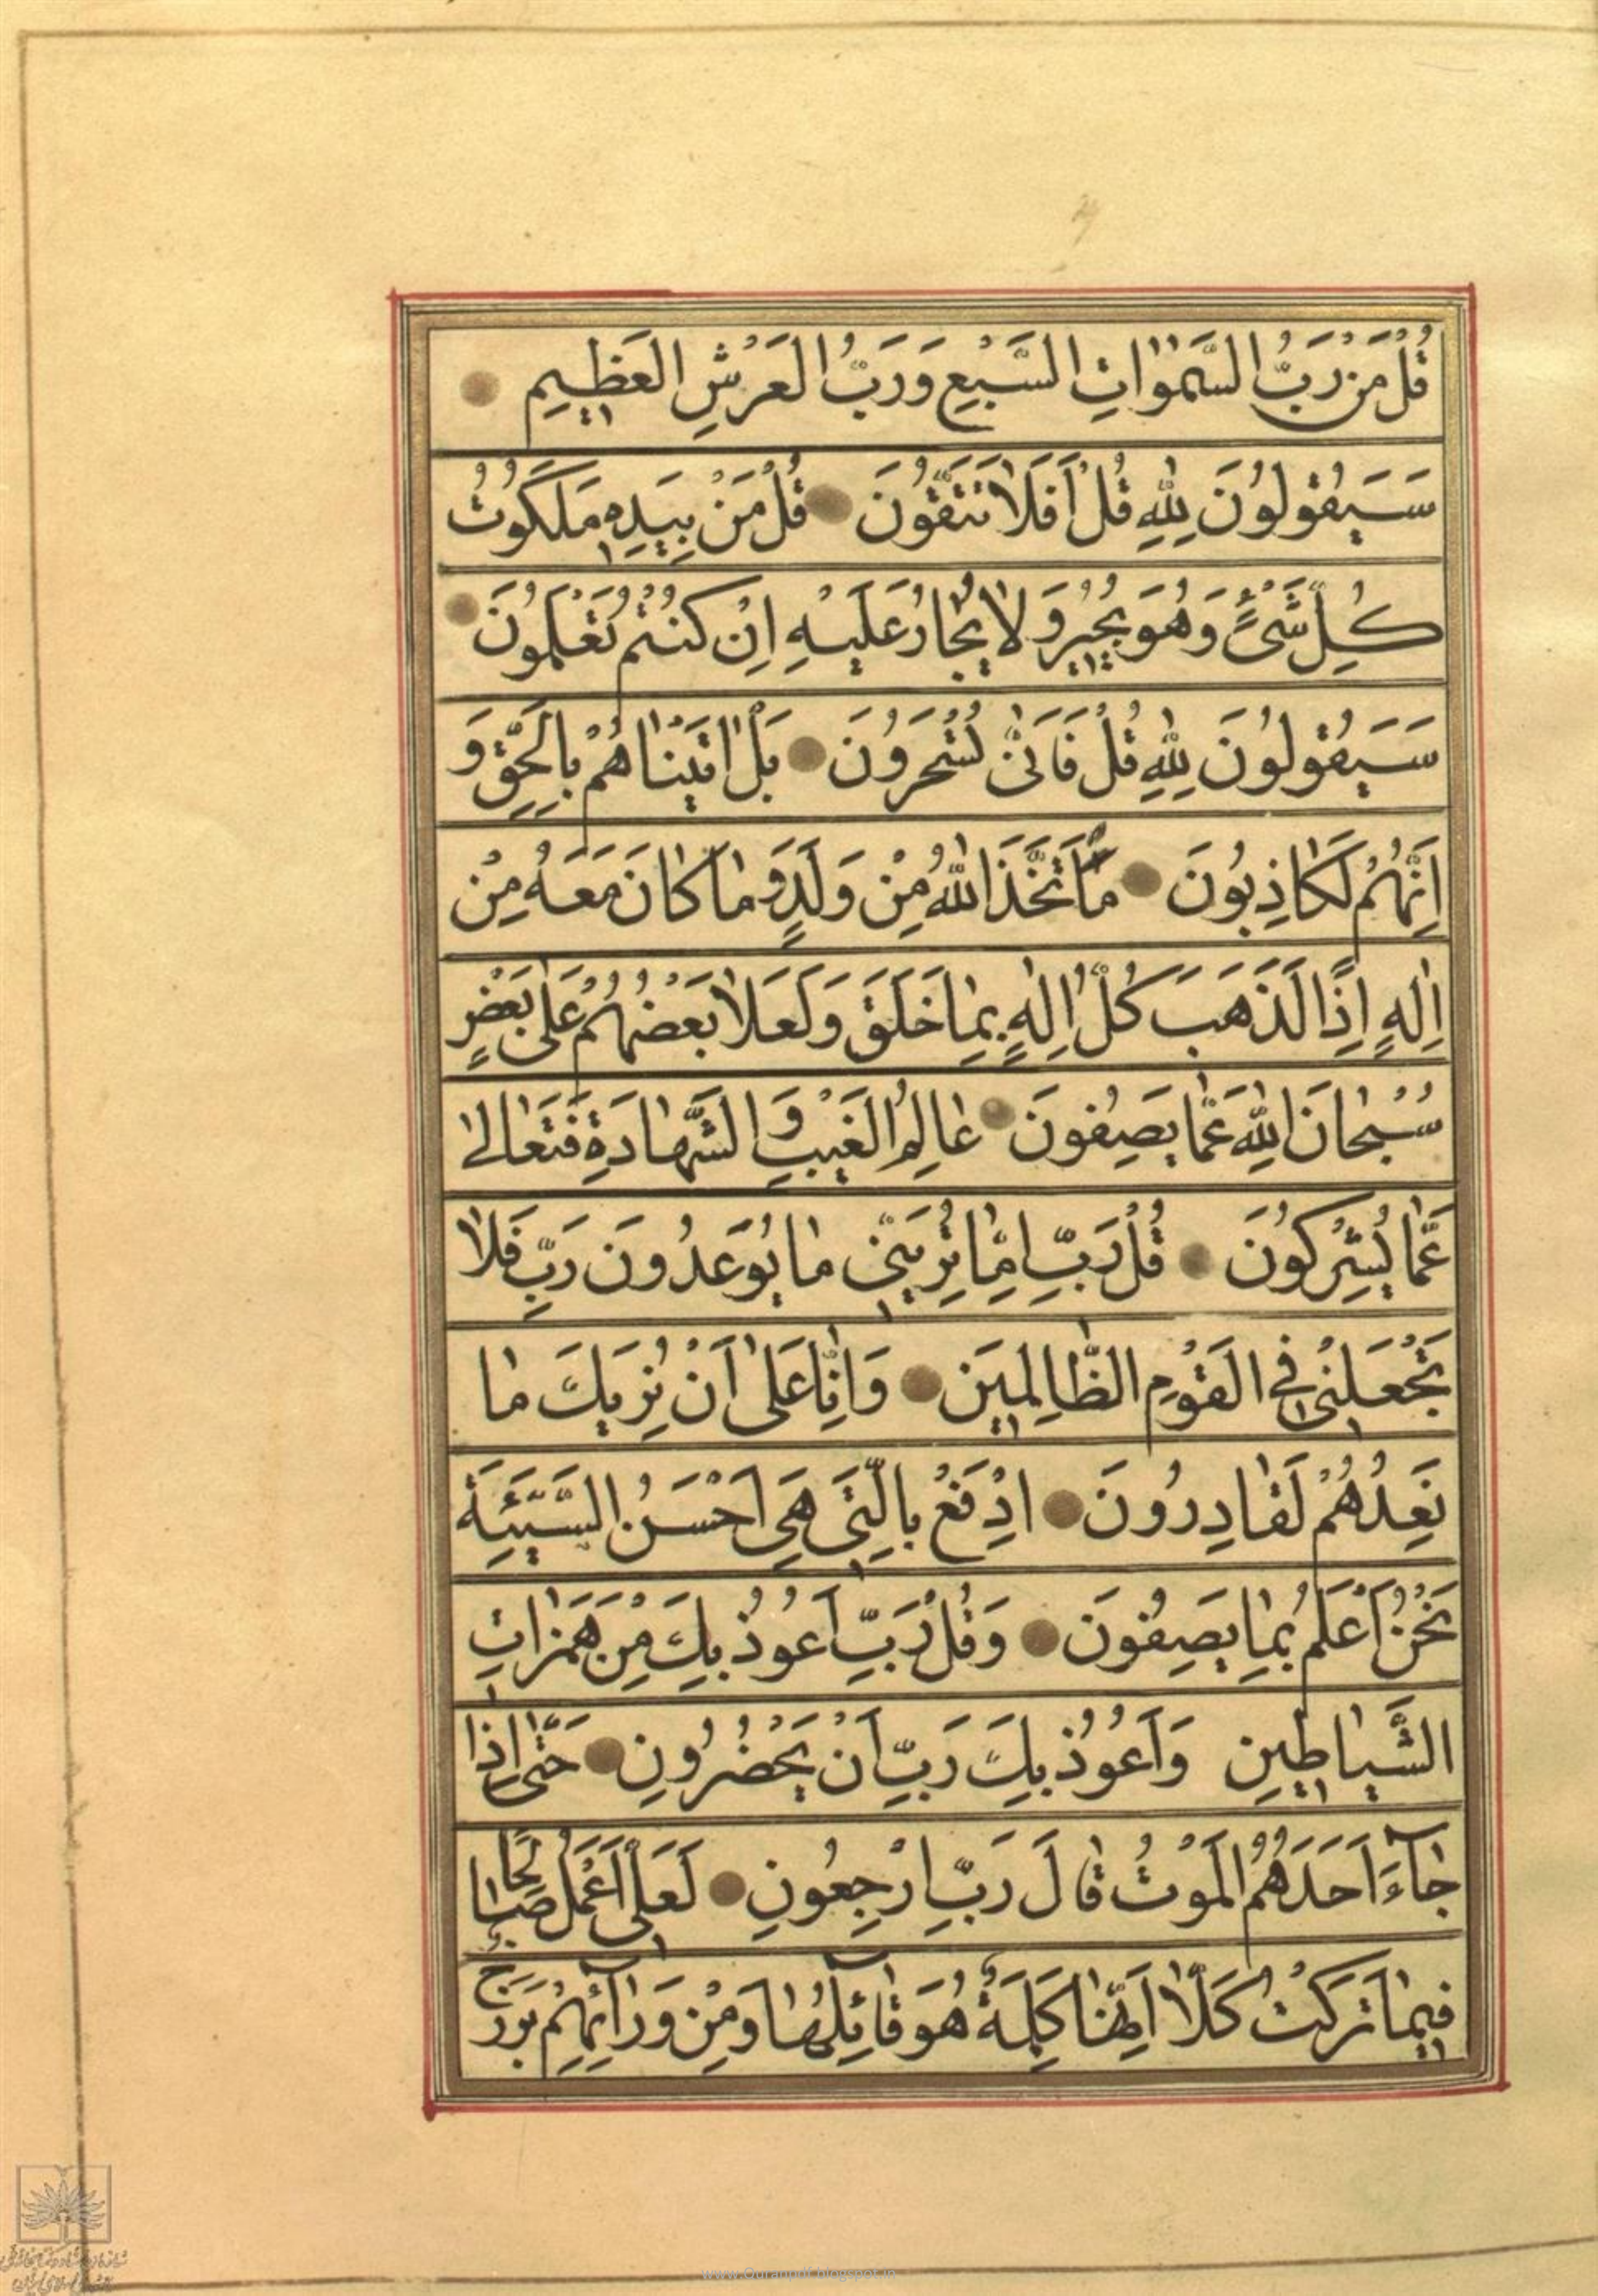 قُلْ مَنْ رَبُّ السَّمٰوٰاتِ السَّبْعِ وَرَبُّ الْعَرْشِ الْعَظِيمِ
سَيَقُولُونَ لِلّٰهِ قُلْ أَفَلاٰ تَتَّقُونَ قُلْ مَنْ بِيَدِهِ مَلَكُوتُ
كُلِّ شَيْءٍ وَهُوَ يُجِيرُ وَلاٰ يُجٰارُ عَلَيْهِ اِنْ كُنْتُمْ تَعْلَمُونَ
سَيَقُولُونَ لِلّٰهِ قُلْ فَاَنّٰى تُسْحَرُونَ بَلْ اٰتَيْنٰاهُمْ بِالْحَقِّ وَ
اِنَّهُمْ لَكٰاذِبُونَ مَا اتَّخَذَ اللّٰهُ مِنْ وَلَدٍ وَمٰا كٰانَ مَعَهُ مِنْ
اِلٰهٍ اِذًا لَذَهَبَ كُلُّ اِلٰهٍ بِمٰا خَلَقَ وَلَعَلاٰ بَعْضُهُمْ عَلٰى بَعْضٍ
سُبْحٰانَ اللّٰهِ عَمّٰا يَصِفُونَ عٰالِمُ الْغَيْبِ وَالشَّهٰادَةِ فَتَعٰالٰى
عَمّٰا يُشْرِكُونَ قُلْ رَبِّ اِمّٰا تُرِيَنِّي مٰا يُوعَدُونَ رَبِّ فَلاٰ
تَجْعَلْنِي فِي الْقَوْمِ الظّٰالِمِينَ وَاِنّٰا عَلٰى اَنْ نُرِيَكَ مٰا
نَعِدُهُمْ لَقٰادِرُونَ ادْفَعْ بِالَّتِي هِيَ اَحْسَنُ السَّيِّئَةَ
نَحْنُ اَعْلَمُ بِمٰا يَصِفُونَ وَقُلْ رَبِّ اَعُوذُ بِكَ مِنْ هَمَزٰاتِ
الشَّيٰاطِينِ وَاَعُوذُ بِكَ رَبِّ اَنْ يَحْضُرُونِ حَتّٰى اِذٰا
جٰآءَ اَحَدَهُمُ الْمَوْتُ قٰالَ رَبِّ ارْجِعُونِ لَعَلِّي اَعْمَلُ صٰالِحًا
فِيمٰا تَرَكْتُ كَلاّٰ اِنَّهٰا كَلِمَةٌ هُوَ قٰائِلُهٰا وَمِنْ وَرٰآئِهِمْ بَرْزَخٌ
www.Quranpdf.blogspot.in